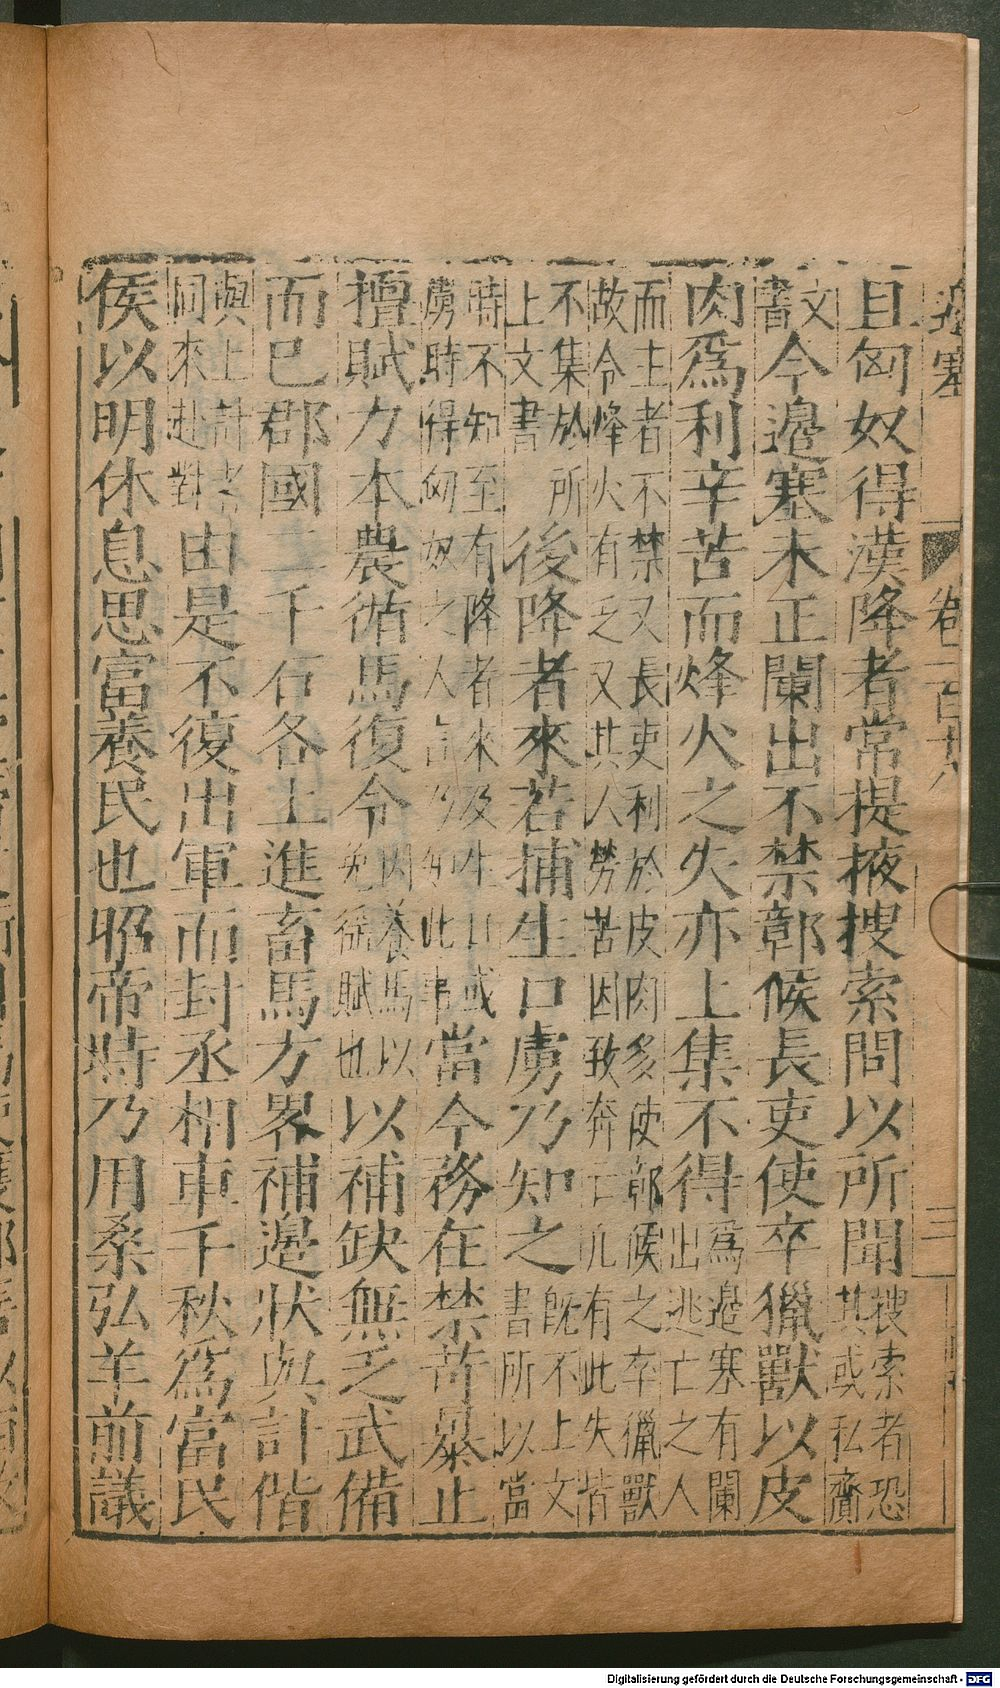 邊塞 卷一百十八 三
且匈奴得漢降者常提掖搜索問以所聞搜索者恐其或私齎
文書今邊塞未正闌出不禁鄣候長吏使卒獵獸以皮
肉爲利辛苦而烽火之失亦上集不得爲邊塞有闌出逃亡之人
而主者不禁又長吏利於皮肉多使鄣候之卒獵獸
故令烽火有乏又其人勞苦因致奔亡凡有此失皆
不集於所上文書後降者來若捕生口虜乃知之旣不上文書所以當
時不知至有降者來及生口或虜時得匈奴之人言乃知此事當今務在禁苛暴止
擅賦力本農循馬復令因養馬以免徭賦也以補缺無乏武備
而已郡國二千石各上進畜馬方界補邊狀與計偕
與上計者同來赴對由是不復出軍而封丞相車千秋爲富民
侯以明休息思富養民也昭帝時乃用桑弘羊前議
Digitalisierung gefördert durch die Deutsche Forschungsgemeinschaft - DFG